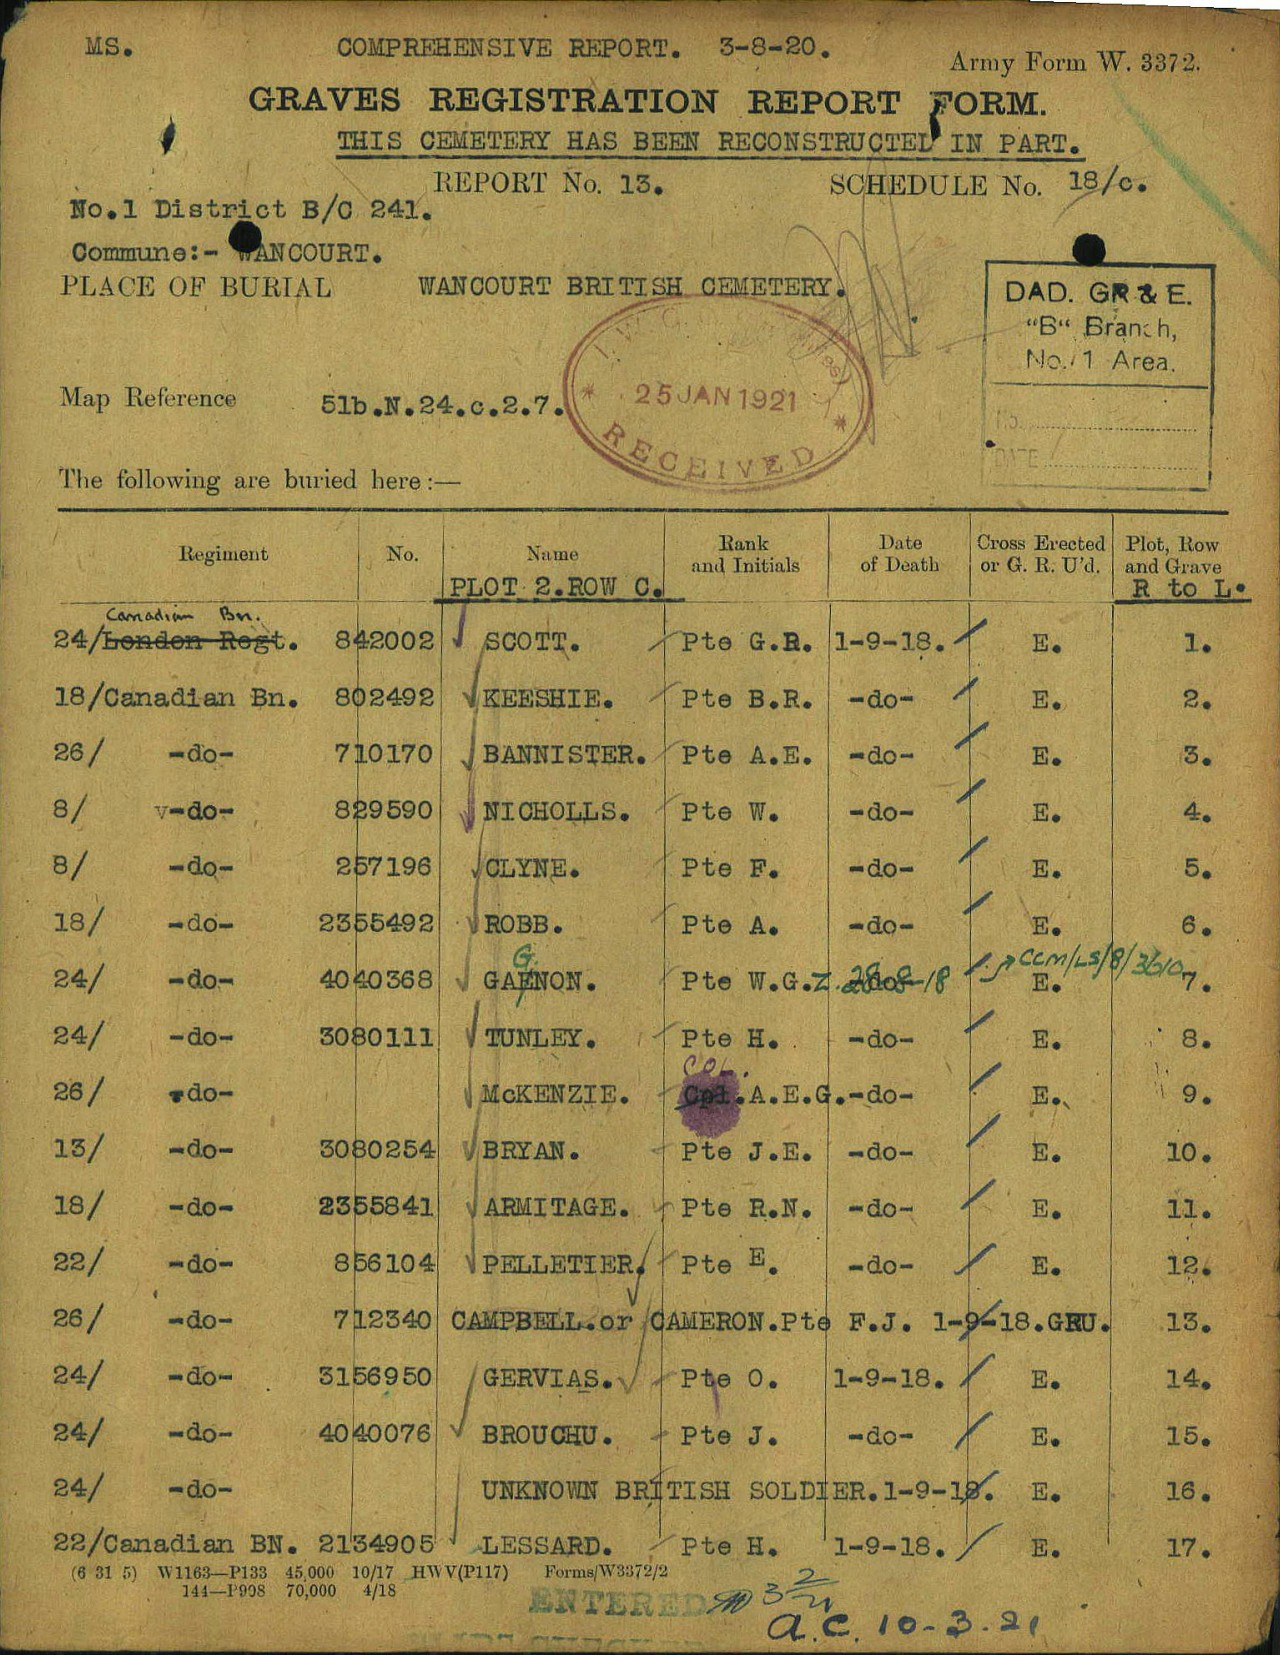 MS. COMPREHENSIVE REPORT. 3-8-20. Army Form W. 3372.
GRAVES REGISTRATION REPORT FORM.
THIS CEMETERY HAS BEEN RECONSTRUCTED IN PART.
REPORT No. 13. SCHEDULE No. 18/c.
No.1 District B/C 241.
Commune:- WANCOURT.
PLACE OF BURIAL WANCOURT BRITISH CEMETERY.
DAD. GR & E.
"B" Branch,
No. 1 Area.
No.
DATE
Map Reference 51b.N.24.c.2.7.
I.W.G.
25 JAN 1921
RECEIVED
The following are buried here:—
Regiment No. Name Rank and Initials Date of Death Cross Erected or G. R. U'd. Plot, Row and Grave
PLOT 2.ROW C. R to L.
Canadian Bn.
24/London Regt. 842002 SCOTT. Pte G.R. 1-9-18. E. 1.
18/Canadian Bn. 802492 KEESHIE. Pte B.R. -do- E. 2.
26/ -do- 710170 BANNISTER. Pte A.E. -do- E. 3.
8/ -do- 829590 NICHOLLS. Pte W. -do- E. 4.
8/ -do- 257196 CLYNE. Pte F. -do- E. 5.
18/ -do- 2355492 ROBB. Pte A. -do- E. 6.
G. CCM/LS/8/3610
24/ -do- 4040368 GAENON. Pte W.G.Z. -do- 28-8-18 E. 7.
24/ -do- 3080111 TUNLEY. Pte H. -do- E. 8.
26/ -do- McKENZIE. Cpl.A.E.G.-do- E. 9.
13/ -do- 3080254 BRYAN. Pte J.E. -do- E. 10.
18/ -do- 2355841 ARMITAGE. Pte R.N. -do- E. 11.
22/ -do- 856104 PELLETIER. Pte E. -do- E. 12.
26/ -do- 712340 CAMPBELL.or CAMERON.Pte F.J. 1-9-18.GRU. 13.
24/ -do- 3156950 GERVIAS. Pte O. 1-9-18. E. 14.
24/ -do- 4040076 BROUCHU. Pte J. -do- E. 15.
24/ -do- UNKNOWN BRITISH SOLDIER.1-9-18. E. 16.
22/Canadian BN. 2134905 LESSARD. Pte H. 1-9-18. E. 17.
(6 31 5) W1163—P133 45,000 10/17 HWV(P117) Forms/W3372/2
144—P998 70,000 4/18
ENTERED
a.c. 10-3-21